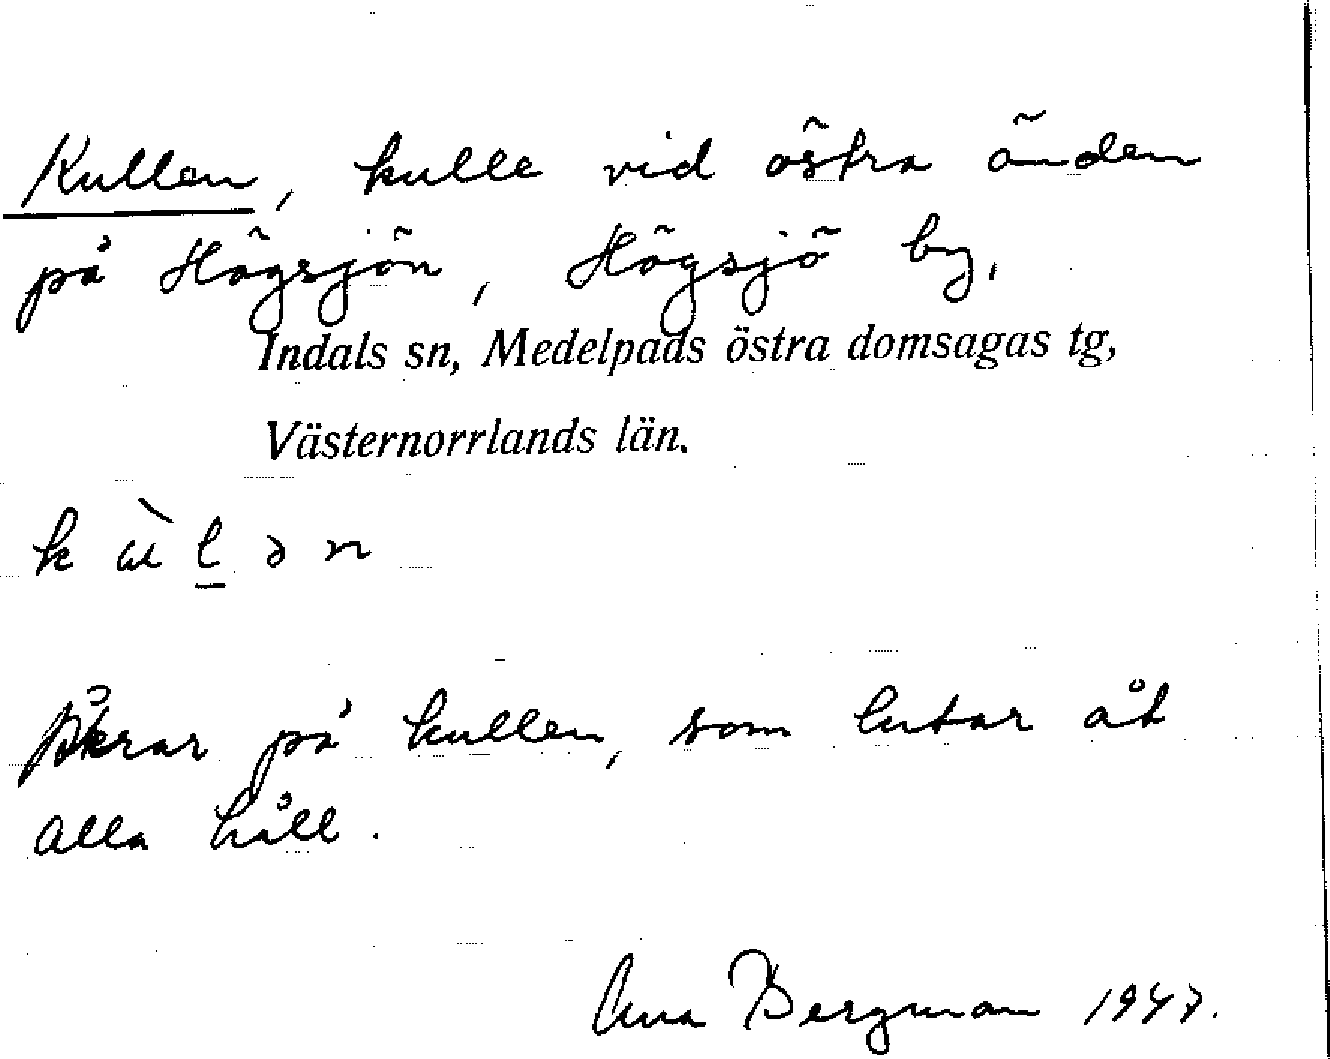 Kullen, kulle vid östra änden
på Högsjön, Högsjö by,
Indals sn, Medelpads östra domsagas tg,
Västernorrlands län.
k ù l̲ ə n
Åkrar på kullen, som lutar åt
alla håll.
Bergman 1947.